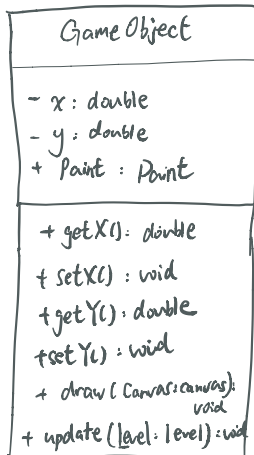 GameObject
- x : double
- y : double
+ Paint : Paint
+ getX() : double
+ setX() : void
+ getY() : double
+ setY() : void
+ draw (Canvas:canvas):
void
+ update (level: level) : void